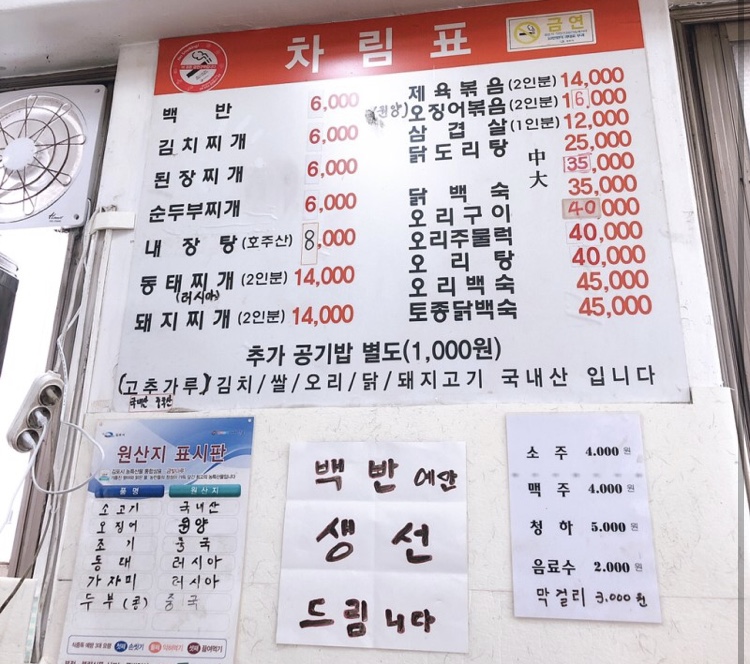 차림표
금연
백반 6,000
김치찌개 6,000
된장찌개 6,000
순두부찌개 6,000
내장탕 (호주산) 8,000
동태찌개 (2인분) 14,000
(러시아)
돼지찌개 (2인분) 14,000
제육볶음 (2인분) 14,000
(원양) 오징어볶음 (2인분) 16,000
삼겹살 (1인분) 12,000
닭도리탕 中 25,000
大 35,000
닭백숙 35,000
오리구이 40,000
오리주물럭 40,000
오리탕 40,000
오리백숙 45,000
토종닭백숙 45,000
추가 공기밥 별도(1,000원)
(고추가루) 김치/쌀/오리/닭/돼지고기 국내산 입니다
원산지 표시판
품명 원산지
소고기 국내산
오징어 원양
조기 중국
동태 러시아
가자미 러시아
두부(콩) 중국
손씻기 익혀먹기 끓여먹기
백반에만
생선
드립니다
소주 4.000원
맥주 4.000원
청하 5.000원
음료수 2.000원
막걸리 3,000원